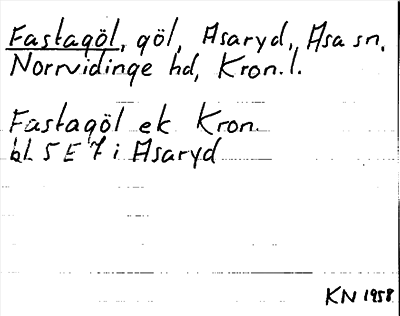 Fastagöl, göl, Asaryd, Asa sn,
Norrvidinge hd, Kron. l.
Fastagöl ek Kron.
bl 5 E 7 i Asaryd
KN 1958